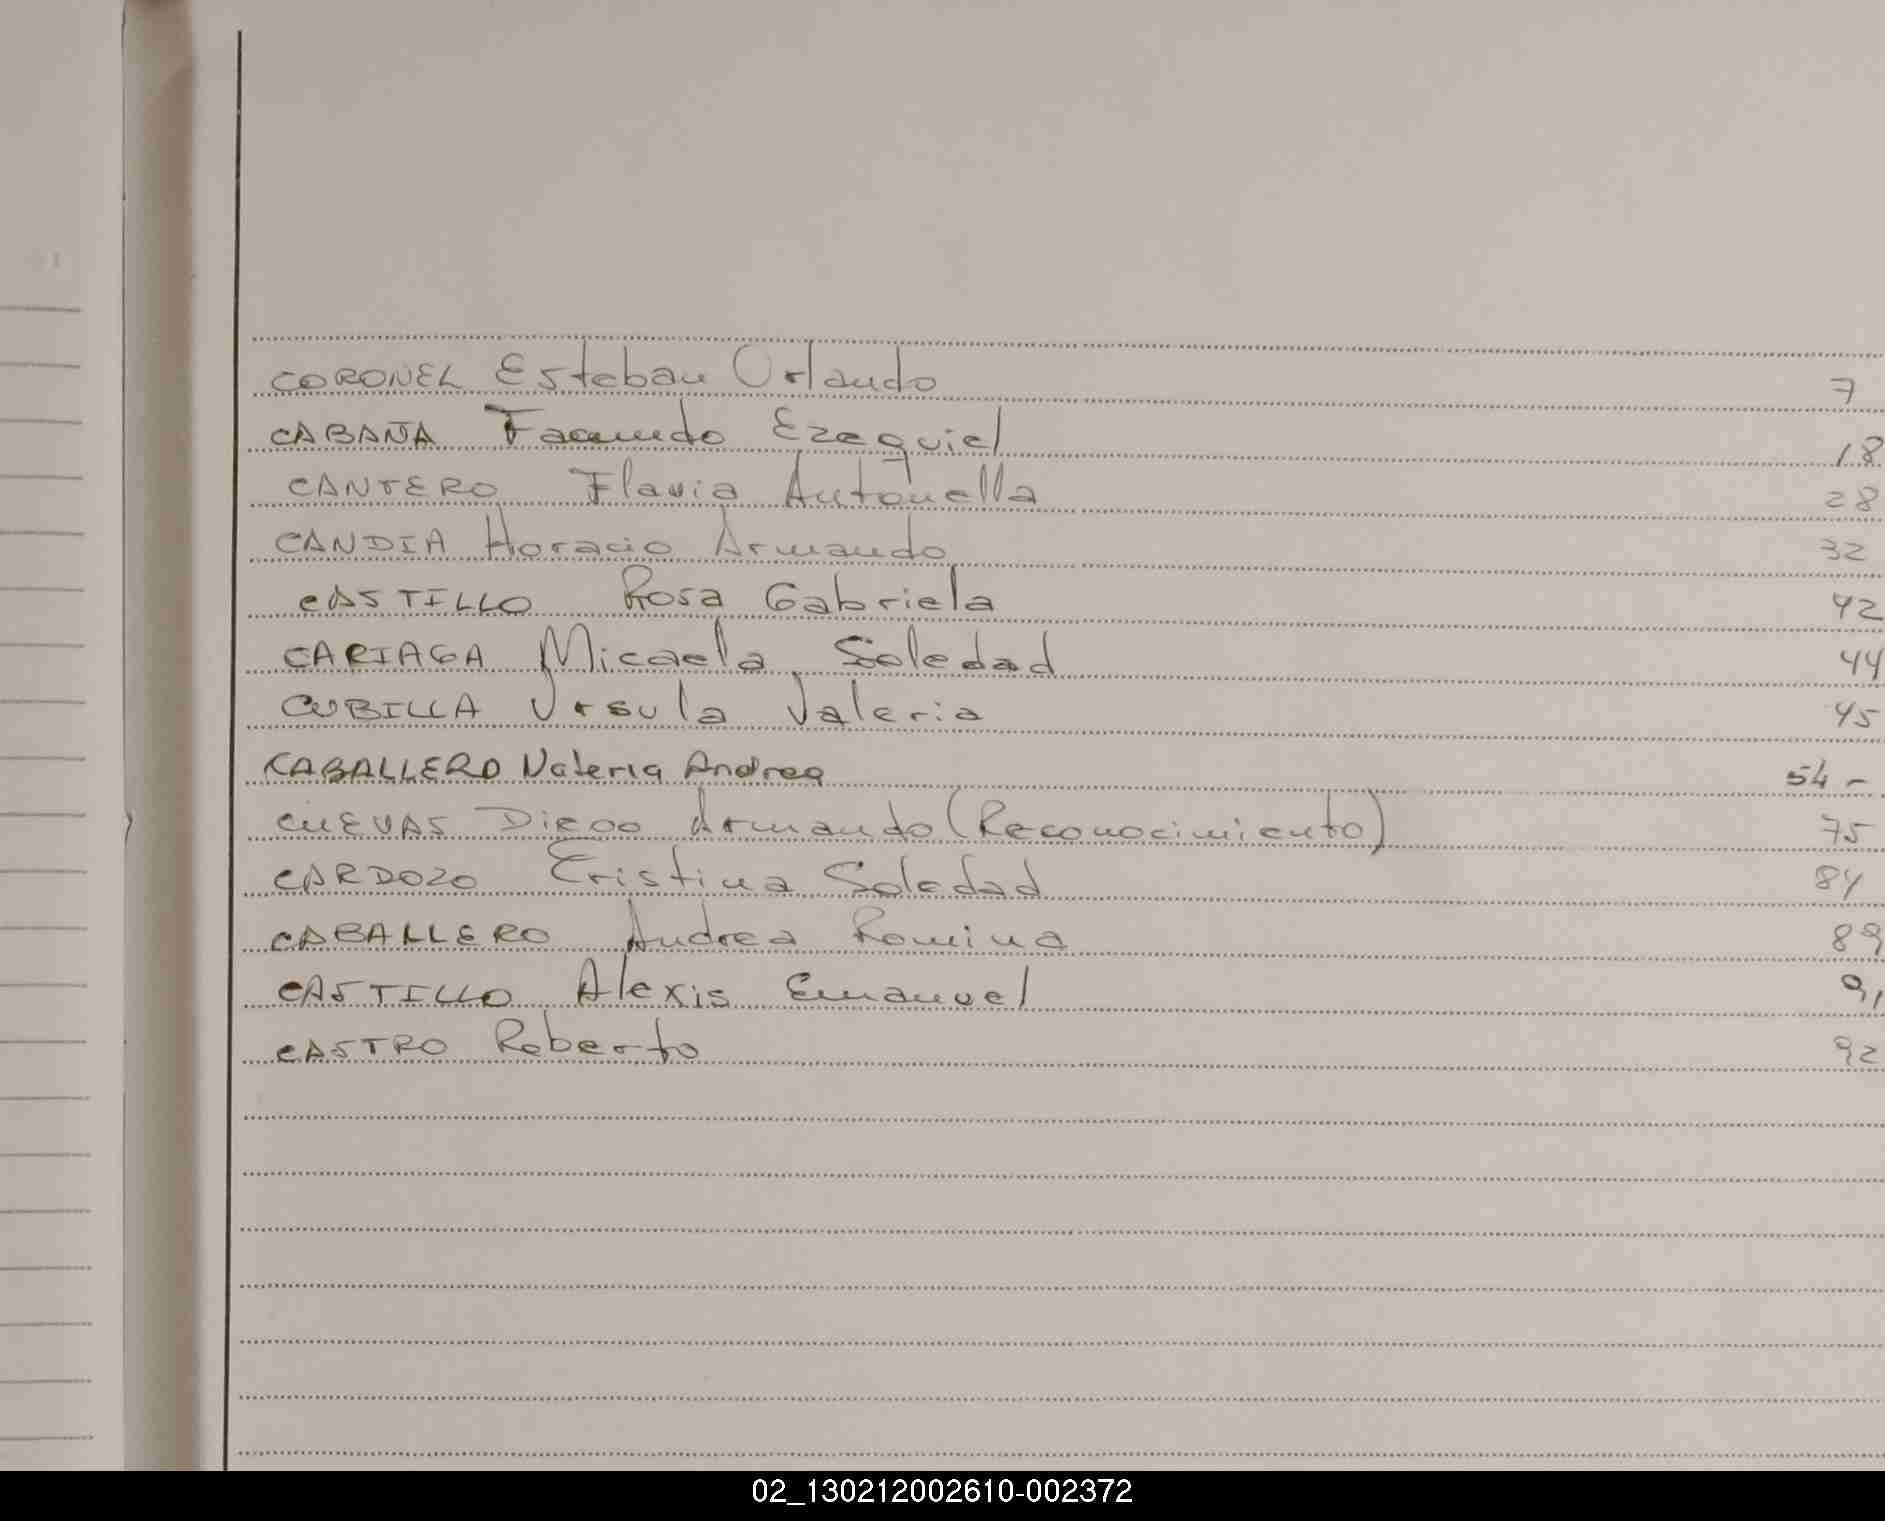 CORONEL Esteban Orlando 7
CABAÑA Facundo Ezequiel 18
CANTERO Flavia Antonella 28
CANDIA Horacio Armando 32
CASTILLO Rosa Gabriela 42
CARIAGA Micaela Soledad 44
CUBILLA Ursula Valeria 45
CABALLERO Valeria Andrea 54-
CUEVAS Diego Armando (Reconocimiento) 75
CARDOZO Cristina Soledad 84
CABALLERO Andrea Romina 89
CASTILLO Alexis Emanuel 91
CASTRO Roberto 92
02_130212002610-002372